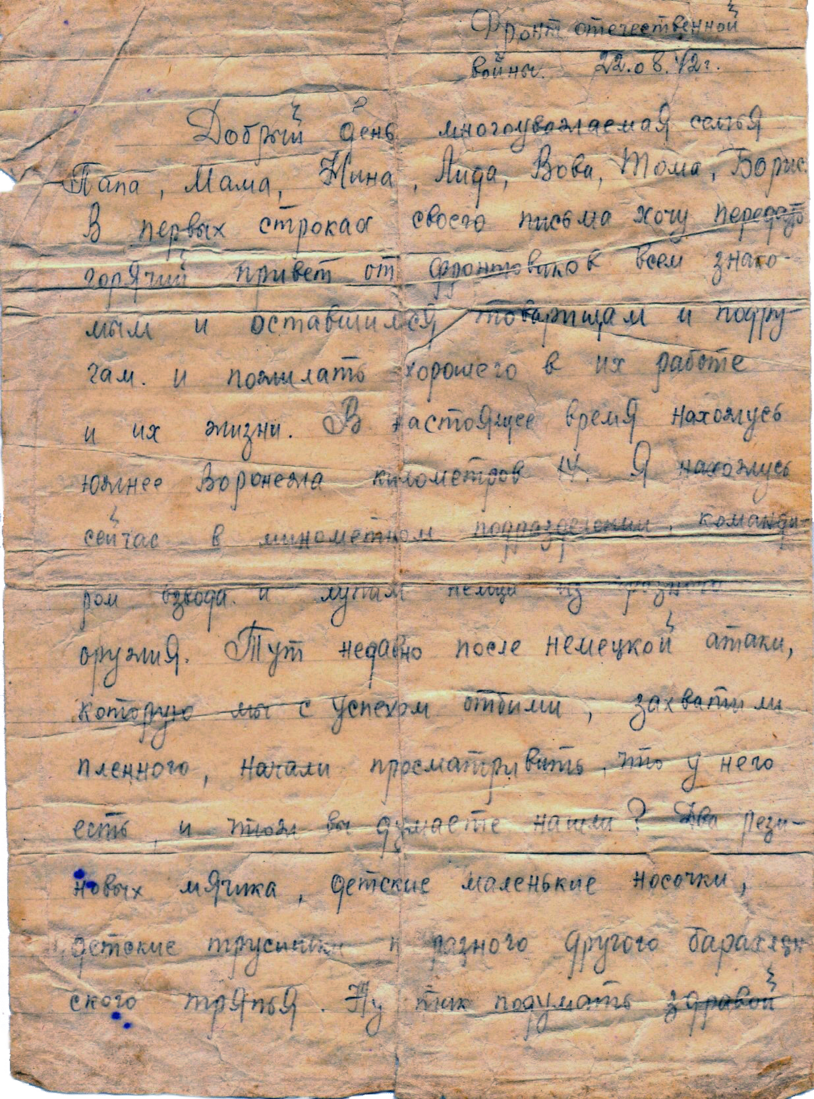 Фронт отечественной
войны. 22.08.42г.
Добрый день многоуважаемая семья
Папа, Мама, Нина, Лида, Вова, Тома, Борис.
В первых строках своего письма хочу передать
горячий привет от фронтовиков всем знако-
мым и оставшимся товарищам и подру-
гам. и пожилать хорошего в их работе
и их жизни. В настоящее время нахожусь
южнее Воронежа километров 14. Я нахожусь
сейчас в минометном подразделении, команди-
ром взвода и лупим немца из разного
оружия. Тут недавно после немецкой атаки,
которую мы с успехом отбили, захватили
пленного, начали просматривать, что у него
есть, и чтож вы думаете нашли? Два рези-
новых мячика, детские маленькие носочки,
детские трусишки и разного другого
ского тряпья. Ну так подумать здравой